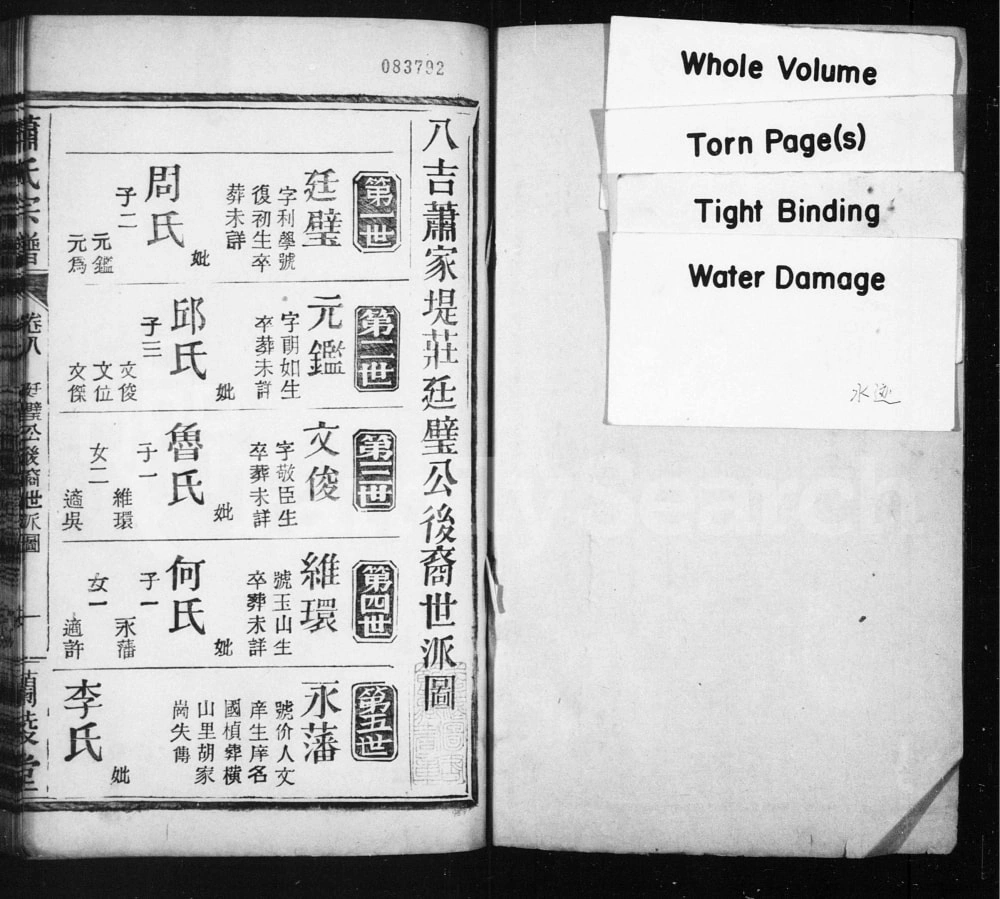 083792
八吉蕭家堤莊廷璧公後裔世派圖
第一世
廷璧
字利學號
復初生卒
葬未詳
妣
周氏
子二
元鑑
元爲
第二世
元鑑
字明如生
卒葬未詳
妣
邱氏
子三
文俊
文位
文傑
第三世
文俊
字敬臣生
卒葬未詳
妣
魯氏
子一
維環
女二
適吳
第四世
維環
號玉山生
卒葬未詳
妣
何氏
子一
永藩
女一
適許
第五世
永藩
號价人文
庠生庠名
國楨葬橫
山里胡家
崗失傳
妣
李氏
蕭氏宗譜
卷八
廷璧公後裔世派圖
一
蘭陵堂
Whole Volume
Torn Page(s)
Tight Binding
Water Damage
水迹